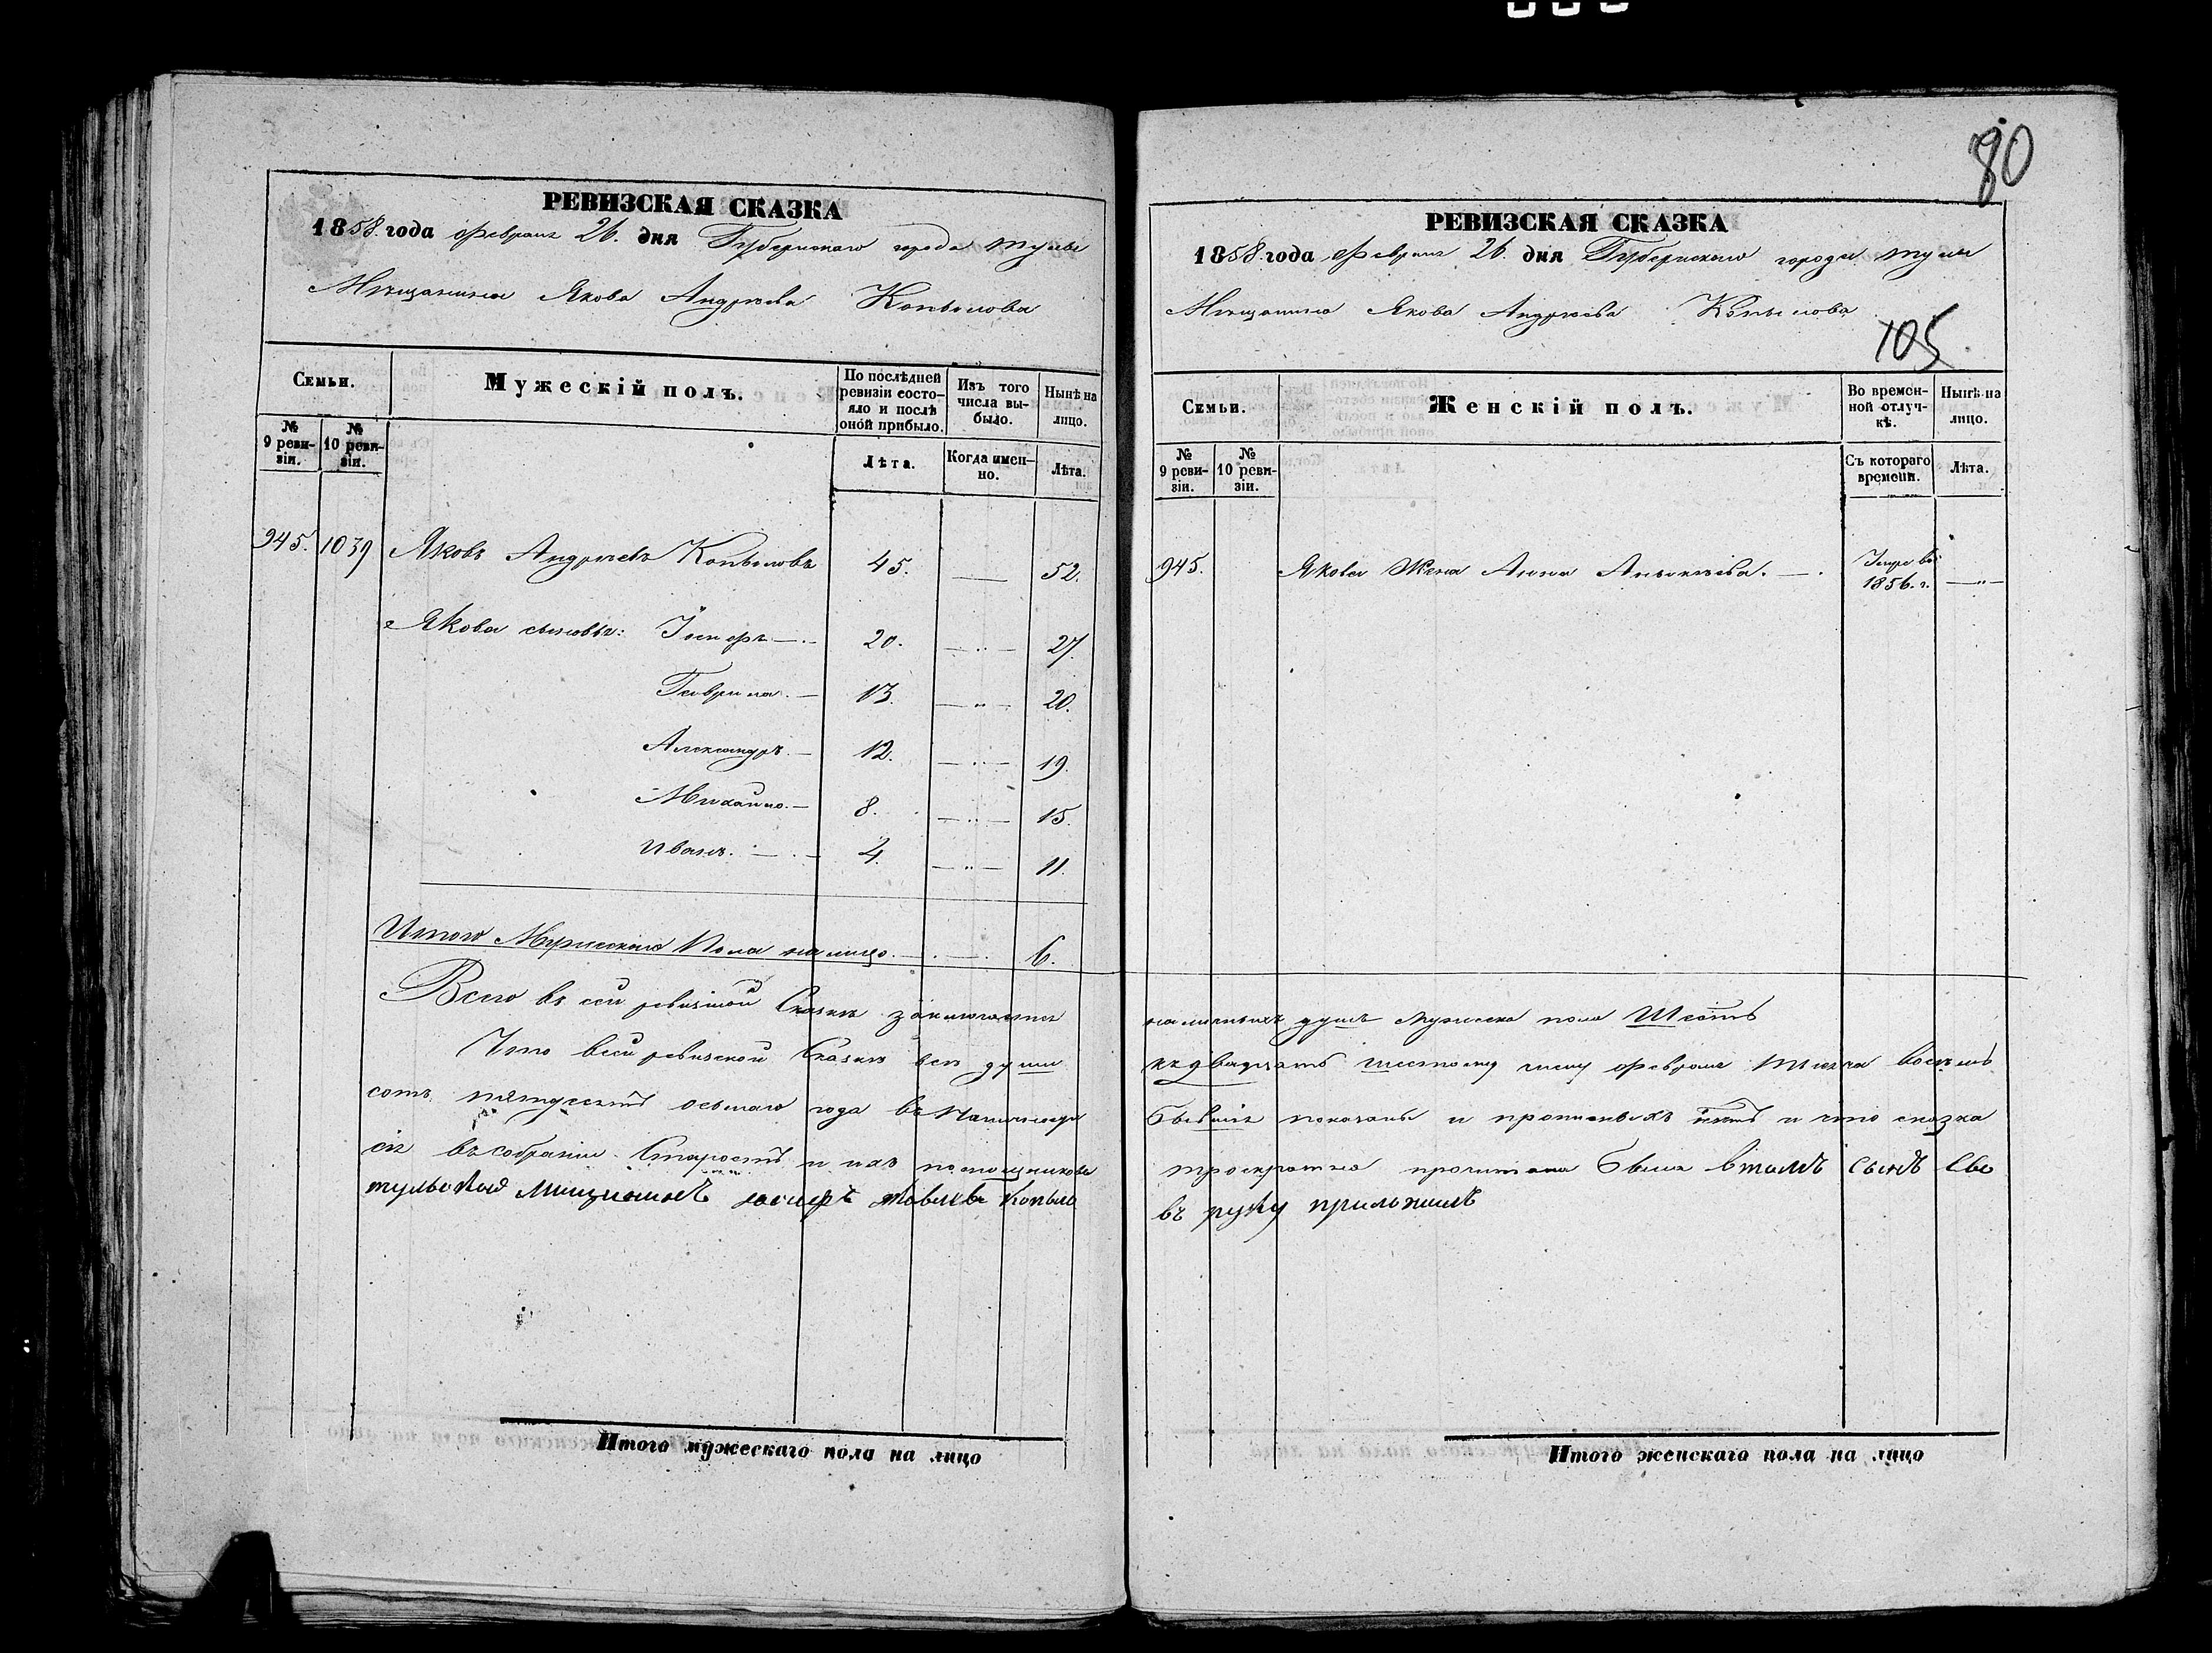 80
РЕВИЗСКАЯ СКАЗКА
1858 года Февраля 26. дня Губернскаго города Тулы
Мѣщанина Якова Андрѣева Копылова
Семьи.
Мужескій полъ.
По послѣдней ревизіи состояло и послѣ оной прибыло.
Изъ того числа выбыло.
Нынѣ на лицо.
№ 9 ревизіи.
№ 10 ревизіи.
Лѣта.
Когда именно.
Лѣта.
945. 1039 Яковъ Андрѣевъ Копыловъ 45. — 52.
Якова сыновья: Іосифъ — 20. — „ — 27.
Гаврила. — 13. — „ — 20.
Александръ. — 12. — „ — 19.
Михайло. — 8. — „ — 15.
Иванъ. — 4. — „ — 11.
Итого Мужескаго Пола на лицо. — 6.
Всего въ сей ревизской Сказкѣ заключается
Что въ сей ревизской Сказкѣ всѣ души
сотъ пятьдесятъ осьмаго года въ
въ собраніи Старостъ и ихъ помощниковъ
тульской Копыло
Итого мужескаго пола на лицо
РЕВИЗСКАЯ СКАЗКА
1858 года Февраля 26. дня Губернскаго города Тулы
Мѣщанина Якова Андрѣева Копылова
105
Семьи.
Женскій полъ.
Во временной отлучкѣ.
Нынѣ на лицо.
№ 9 ревизіи.
№ 10 ревизіи.
Съ котораго времени.
Лѣта.
945. Якова Жена Анна — 1856. г. — „ —
наличныхъ душъ мужеска пола Шесть
къ двадцать шестому числу февраля тысяча восемь
показаны и прописныхъ нѣтъ и что сказка
троекратно прочитана была втомъ сынъ Ево
въ руку приложилъ
Итого женскаго пола на лицо